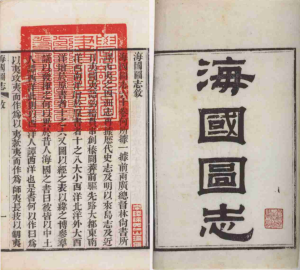 海國圖志
海國圖志敘
海國圖志六十卷何所據一據前兩廣總督林尚書所
譯西夷之四洲志再據歷代史志及明以來島志及近
日夷圖夷語鉤稽貫串創榛闢莽前驅先路大都東南
洋西南洋增於原書者十之八大小西洋北洋外大西
洋增於原書者十之六又圖以經之表以緯之博參羣
議以發揮之何以異於昔人海圖之書曰彼皆以中土
人譚西洋此則以西洋人譚西洋也是書何以作曰為
以夷攻夷而作為以夷款夷而作為師夷長技以制夷
海國圖志 敘